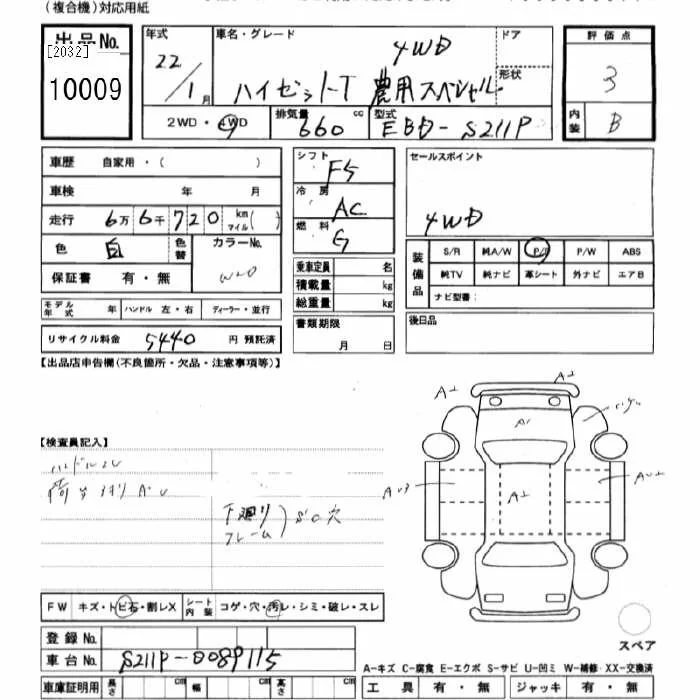 (複合機)対応用紙
出品No.
[2032]
10009
年式
22/1月
車名・グレード
4WD
ハイゼットT 農用スペシャル
ドア
形状
評価点
3
内装
B
2WD・4WD
排気量
660 cc
型式
EBD-S211P
車歴 自家用・( )
車検 年 月
走行 6万6千720 km マイル( )
色 白 色替 カラーNo.
W20
保証書 有・無
モデル年式 年 ハンドル 左・右 ディーラー・並行
リサイクル料金 5440 円 預託済
シフト F5
冷房 AC
燃料 G
乗車定員 名
積載量 kg
総重量 kg
書類期限
月 日
セールスポイント
4WD
装備品
S/R 純A/W P/S P/W ABS
純TV 純ナビ 革シート 外ナビ エアB
ナビ型番:
後日品
【出品店申告欄(不良箇所・欠品・注意事項等)】
【検査員記入】
ハンドルスレ
下廻り
フレーム
A2
A2
A1
A2
FW キズ・トビ石・割レX シート内装 コゲ・穴・汚レ・シミ・破レ・スレ
登録No.
車台No. S211P-0089115
車庫証明用 長さ cm 幅 cm 高さ cm
スペア
A-キズ C-腐食 E-エクボ S-サビ U-凹ミ W-補修・XX-交換済
工具 有・無 ジャッキ 有・無